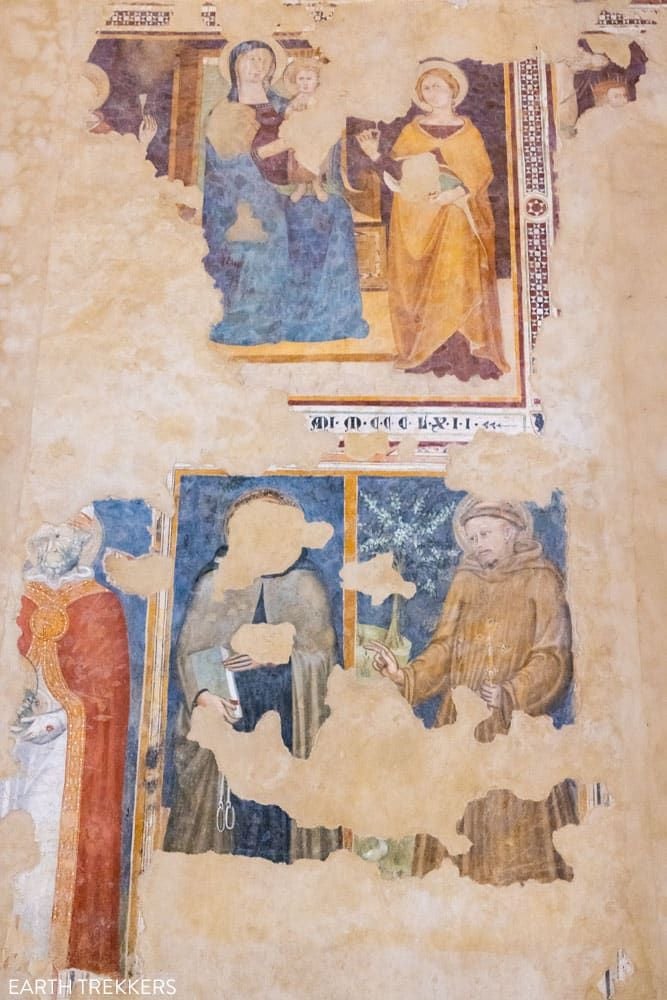 M·C·C·C·L·X·I·I·
EARTH TREKKERS